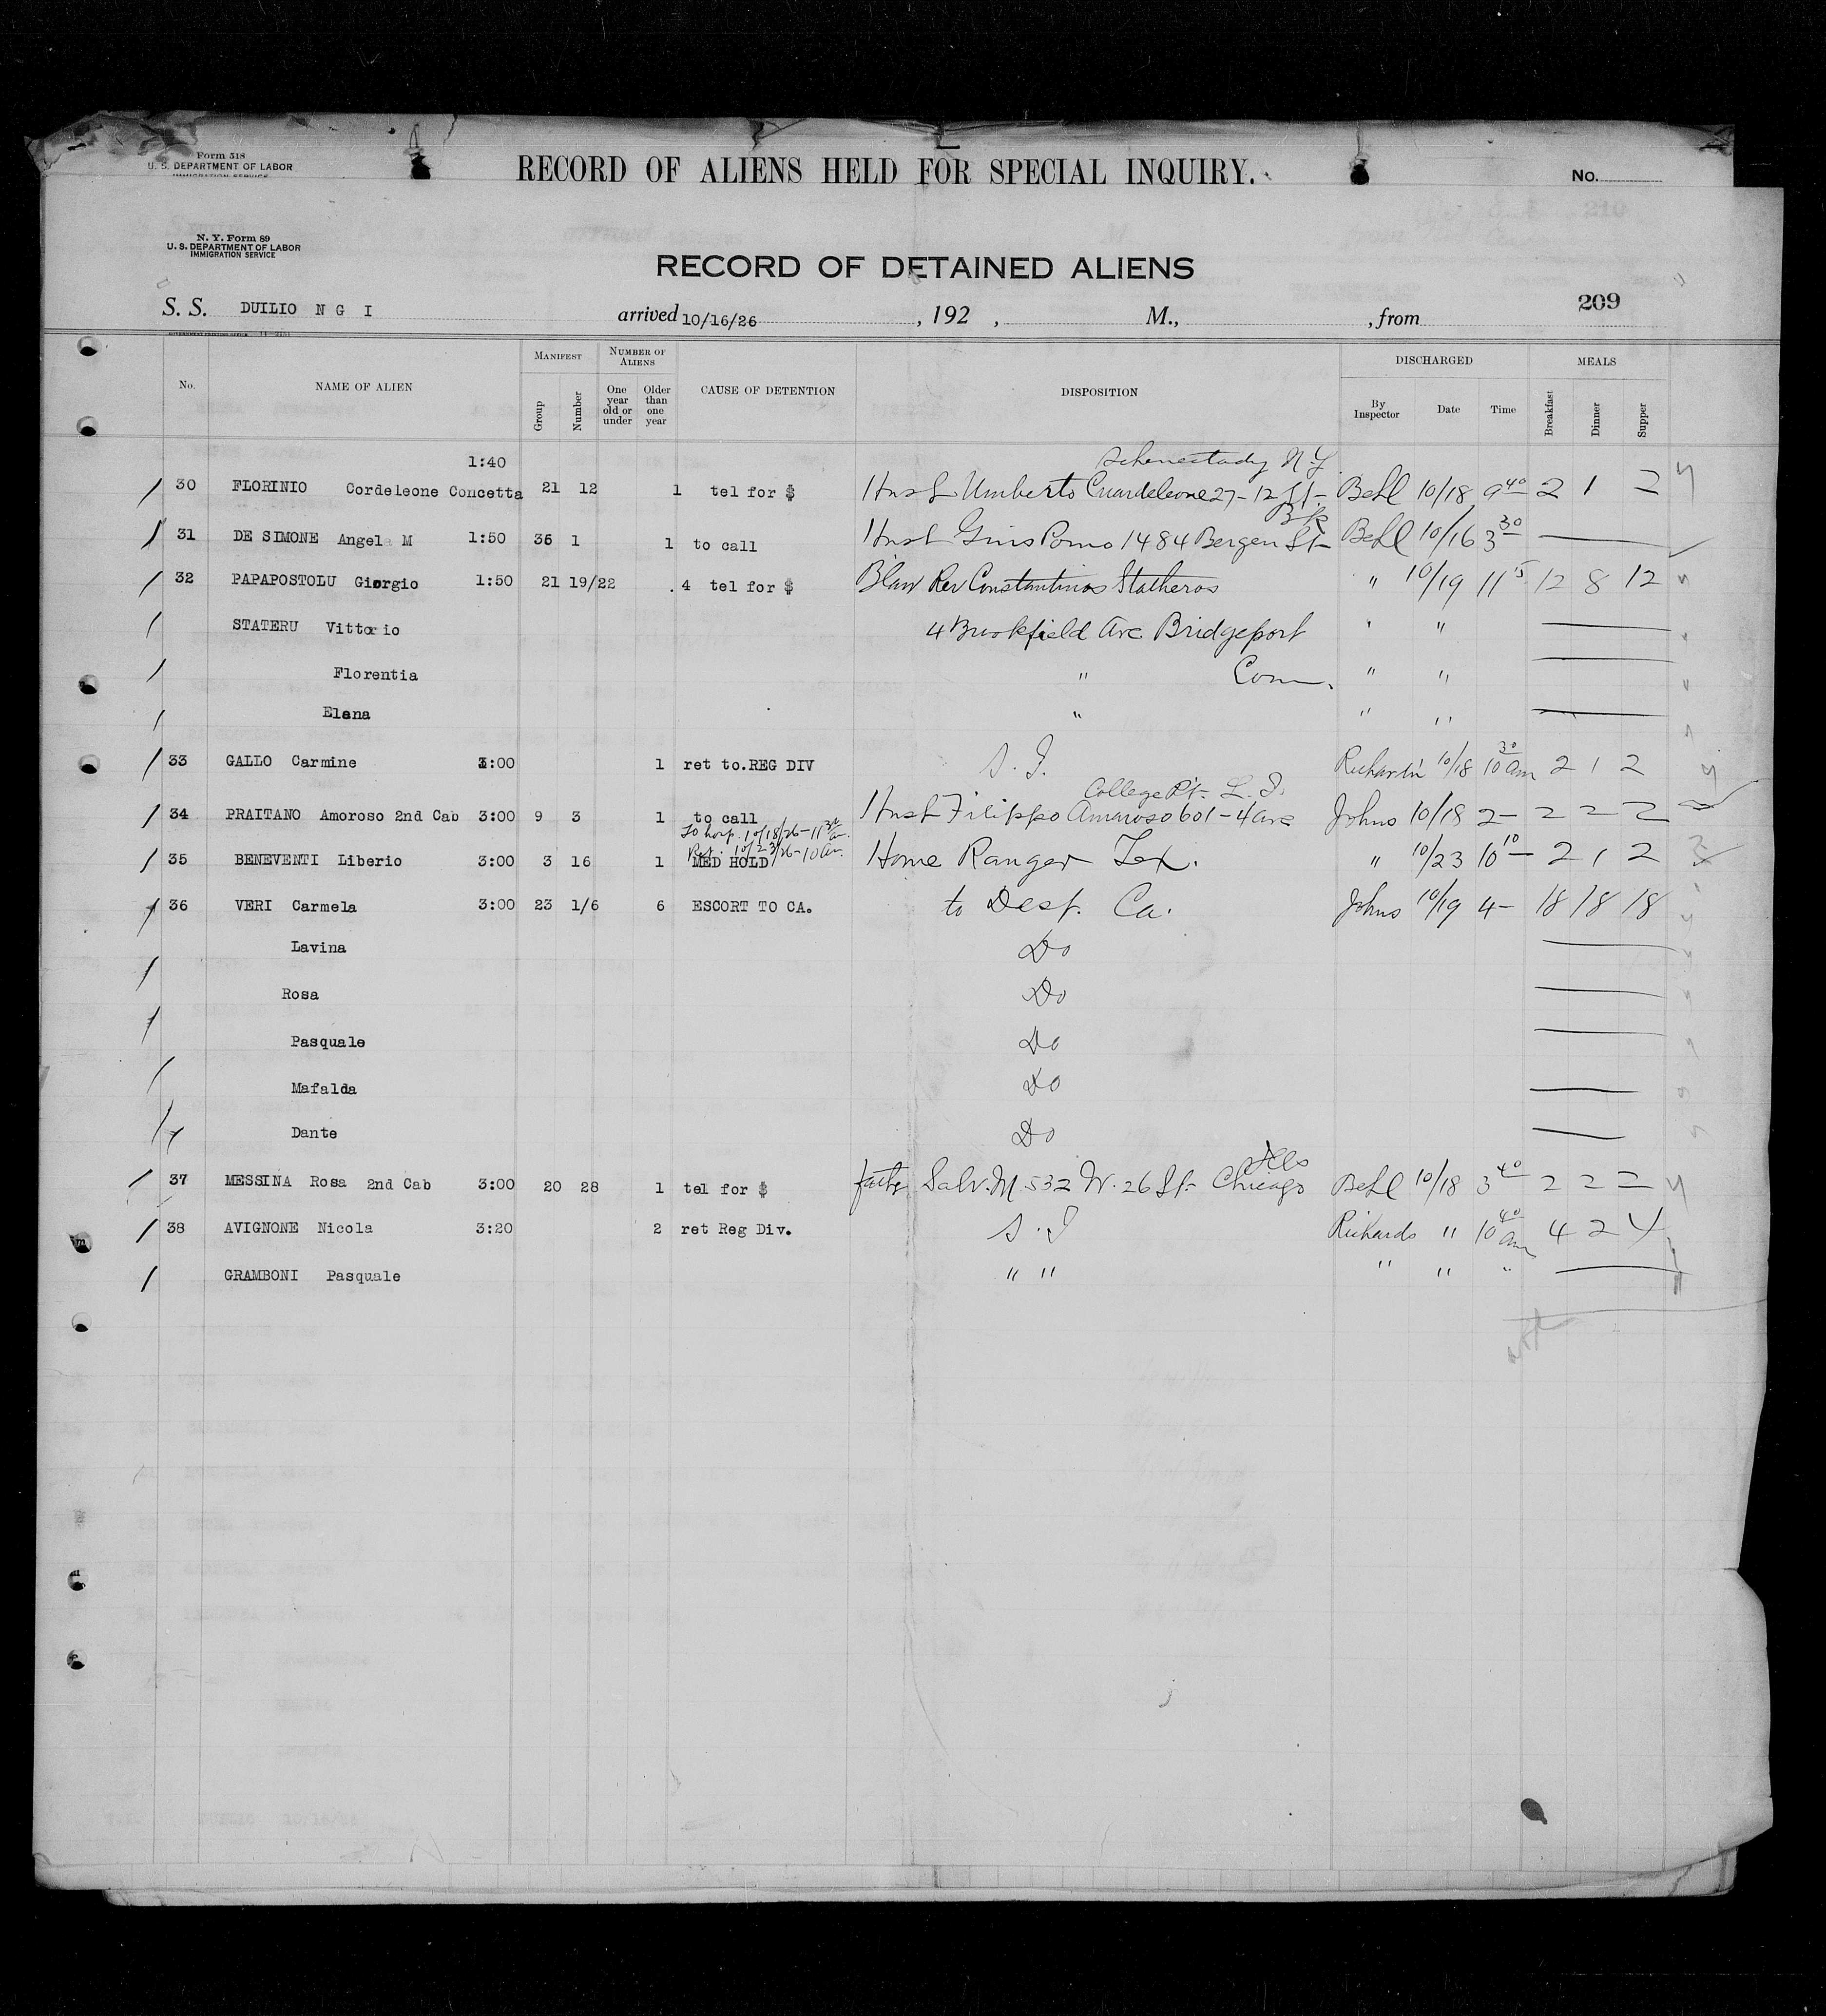 Form 518
U. S. DEPARTMENT OF LABOR
IMMIGRATION SERVICE
RECORD OF ALIENS HELD FOR SPECIAL INQUIRY.
No.
210
N. Y. Form 89
U. S. DEPARTMENT OF LABOR
IMMIGRATION SERVICE
RECORD OF DETAINED ALIENS
S. S. DUILIO N G I arrived 10/16/26, 192 , M., , from 209
No. NAME OF ALIEN MANIFEST NUMBER OF ALIENS CAUSE OF DETENTION DISPOSITION DISCHARGED MEALS
Group Number One year old or under Older than one year By Inspector Date Time Breakfast Dinner Supper
1:40 Schenectady N.Y.
30 FLORINIO Cordeleone Concetta 21 12 1 tel for $ Husb Umberto Cuardeleone 27-12 St- Behl 10/18 9 40 2 1 2
Bk
31 DE SIMONE Angela M 1:50 36 1 1 to call Husb Porno 1484 Bergen St- Behl 10/16 3 30
32 PAPAPOSTOLU Giorgio 1:50 21 19/22 4 tel for $ Rev Constantinos Statheros " 10/19 11 15 12 8 12
STATERU Vittorio 4 Brookfield Ave. Bridgeport " "
Florentia " Conn. " "
Elena " " "
33 GALLO Carmine 3:00 1 ret to.REG DIV S. I. 10/18 10 30 am 2 1 2
College Pt. L. I.
34 PRAITANO Amoroso 2nd Cab 3:00 9 3 1 to call Husb Filippo Amoroso 601-4 ave Johns 10/18 2- 2 2 2
To hosp. 10/18/26-11 30 a.
Ret. 10/23/26-10 am.
35 BENEVENTI Liberio 3:00 3 16 1 MED HOLD Home Ranger Tex. " 10/23 10 10 2 1 2
36 VERI Carmela 3:00 23 1/6 6 ESCORT TO CA. to Dest. Ca. Johns 10/19 4- 18 18 18
Lavina Do
Rosa Do
Pasquale Do
Mafalda Do
Dante Do
Ills
37 MESSINA Rosa 2nd Cab 3:00 20 28 1 tel for $ father Salv. M. 532 W. 26 St- Chicago Behl 10/18 3 40 2 2 2
38 AVIGNONE Nicola 3:20 2 ret Reg Div. S. I Richards " 10 40 am 4 2 4
GRAMBONI Pasquale " " " " "